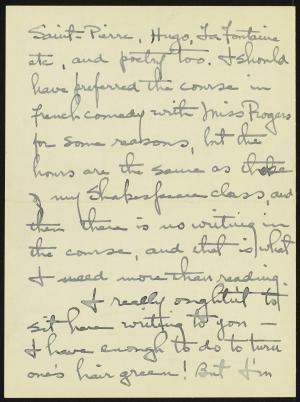 Saint-Pierre, Hugo, La Fontaine
etc, and poetry too. I should
have preferred the course in
french comedy with Miss Rogers
for some reasons, but the
hours are the same as those
of my Shakespeare class, and
then there is no writing in
the course, and that is what
I need more than reading.
I really oughtn't to
sit here writing to you —
I have enough to do to turn
one's hair green! But I'm